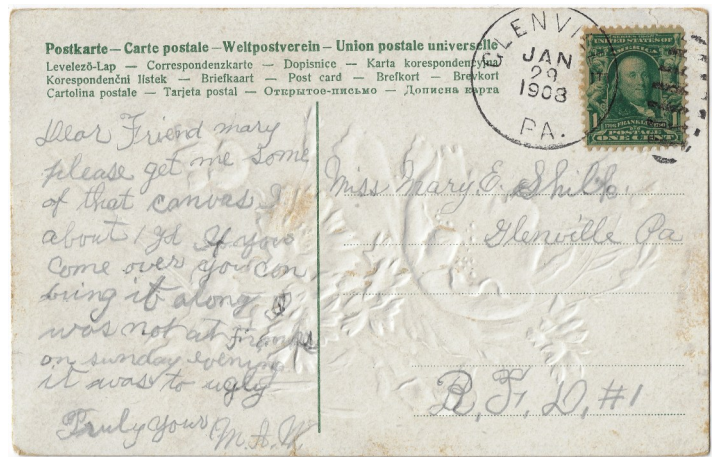 Postkarte — Carte postale — Weltpostverein — Union postale universelle
Levelező-Lap — Correspondenzkarte — Dopisnice — Karta korespondencyjna
Korespondenční lístek — Briefkaart — Post card — Brefkort — Brevkort
Cartolina postale — Tarjeta postal — Открытое-письмо — Дописна карта
GLENVI
JAN
29
1908
PA.
UNITED STATES OF
AMERICA
1 1
FRANKLIN
POSTAGE
ONE CENT
Dear Friend mary
please get me some
of that canvas
about 1 yd If you
come over you can
bring it along I
was not at Franks
on sunday evening
it was to ugly
Truly your M.A.
Miss Mary E.
Glenville Pa
R. F. D. #1